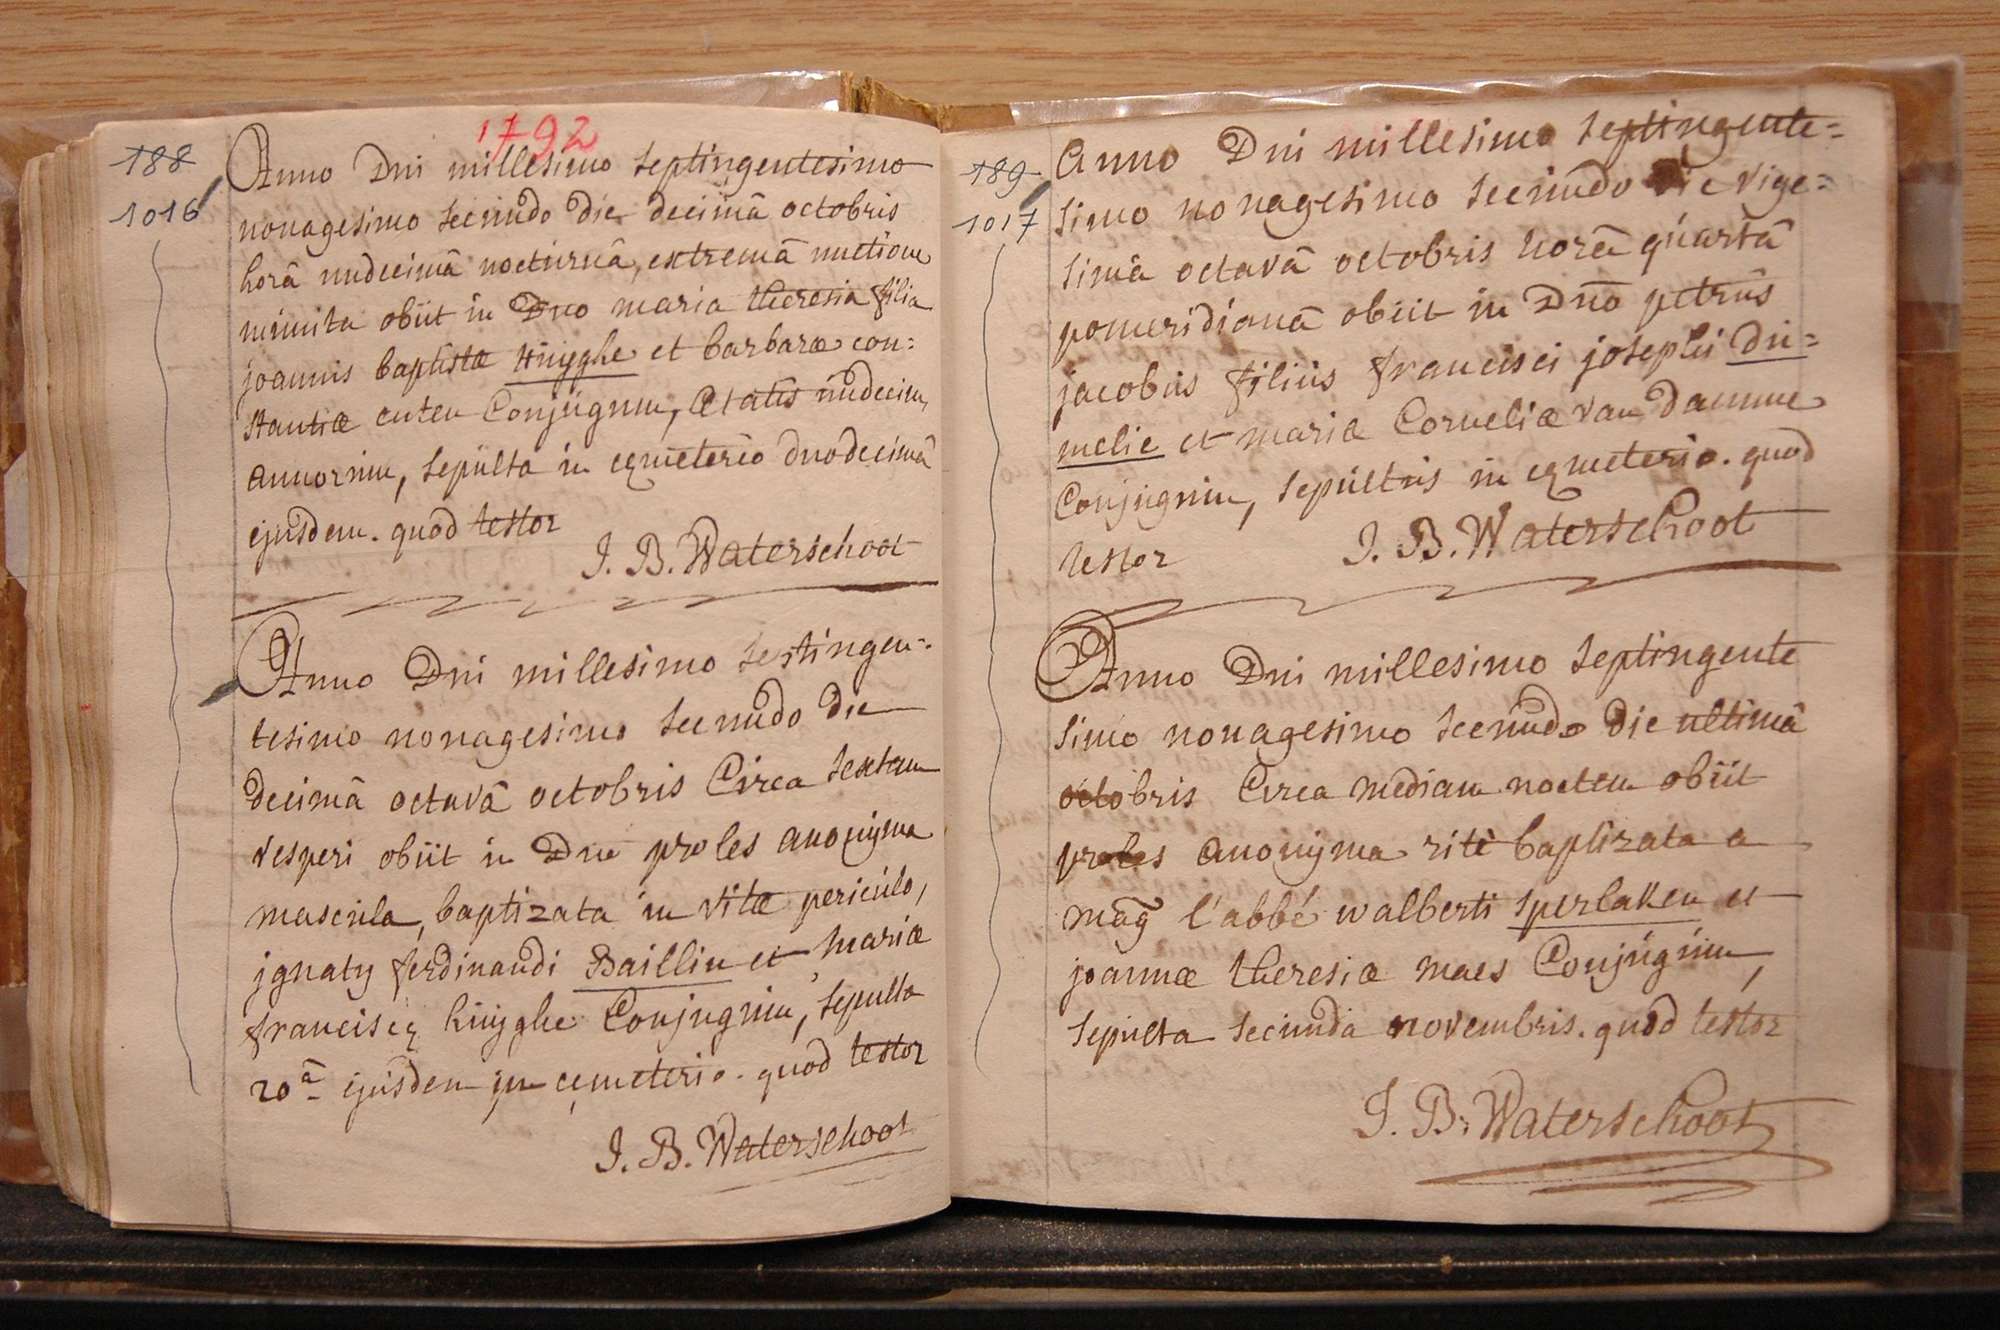 1792
188
1016
Anno Dni millesimo septingentesimo
nonagesimo secundo die decimâ octobris
horâ undecimâ nocturnâ, extremâ unctione
munita obiit in Dno maria theresia filia
joannis baptistæ Huÿghe et barbaræ con=
stantiæ cuten Conjugum, Ætatis undecim
annorum, sepulta in cœmeterio duodecimâ
ejusdem. quod testor
J. B. Waterschoot
Anno Dni millesimo septingen=
tesimo nonagesimo secundo die
decimâ octavâ octobris Circa sextam
vesperi obiit in Dno proles anonÿma
mascula, baptizata in vitæ periculo,
jgnatÿ ferdinandi Baillin et mariæ
franciscę huÿghe Conjugum, sepulta
20â ejusdem in cęmeterio. quod testor
J. B. Waterschoot
189
1017
Anno Dni millesimo septingente=
simo nonagesimo secundo die vige=
simâ octavâ octobris horâ quartâ
pomeridianâ obiit in Dno petrus
jacobus filius francisci josephi du=
melie et mariæ Corneliæ van Damme
Conjugum, sepultus in cęmeterio. quod
testor
J. B. Waterschoot
Anno Dni millesimo septingente
simo nonagesimo secundo die ultimâ
octobris Circa mediam noctem obiit
proles anonÿma ritè baptizata a
mag l'abbé walberti sperlaken et
joannæ theresiæ maes Conjugum,
sepulta secunda novembris. quod testor
J. B. Waterschoot